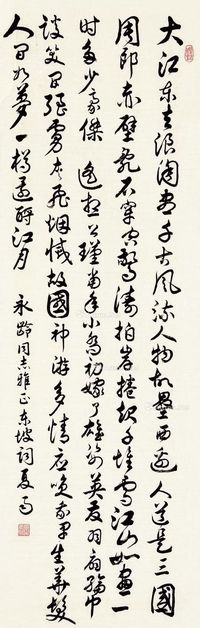 大江东去浪淘尽千古风流人物故垒西边人道是三國
周郎赤壁乱石穿空惊涛拍岸捲起千堆雪江山如画一
时多少豪傑遥想公瑾当年小乔初嫁了雄姿英发羽扇纶巾
谈笑间强虏灰飞烟灭故國神游多情应笑我早生华髮
人间如梦一樽还酹江月
永龄同志雅正东坡词夏